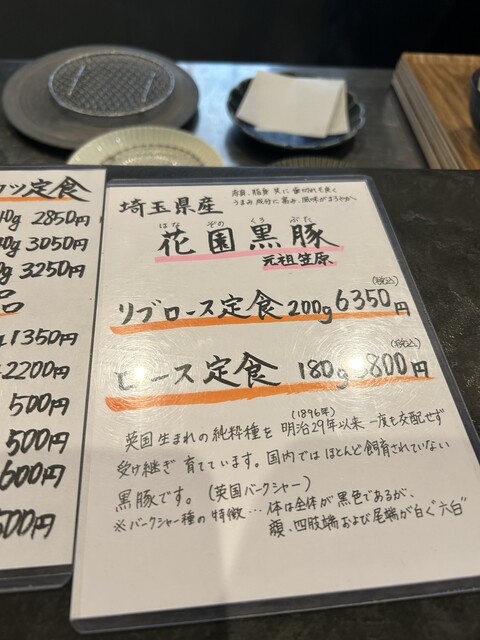 ツ定食
0g 2850円
0g 3050円
g 3250円
品
1350円
2200円
500円
500円
600円
500円
埼玉県産
はな ぞの くろ ぶた
花園黒豚
元祖笠原
(税込)
リブロース定食 200g 6350円
(税込)
ロース定食 180g 800円
(1896年)
英国生まれの純粋種を明治29年以来一度も交配せず
受け継ぎ育てています。国内ではほとんど飼育されていない
黒豚です。(英国バークシャー)
※バークシャー種の特徴…体は全体が黒色であるが、
顔、四肢端および尾端が白く"六白"